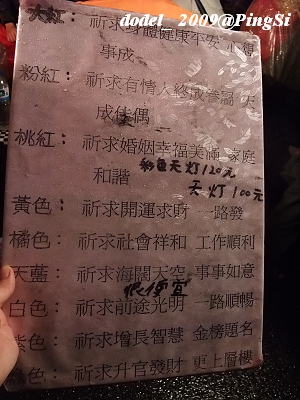 dodel 2009@PingSi
大紅：祈求身體健康平安 心得
事成
粉紅：祈求有情人終成眷屬 天
成佳偶
桃紅：祈求婚姻幸福美滿 家庭
和諧
彩色天灯120元
天灯100元
黃色：祈求開運求財 一路發
橘色：祈求社會祥和 工作順利
天藍：祈求海闊天空 事事如意
很便宜
白色：祈求前途光明 一路順暢
紫色：祈求增長智慧 金榜題名
色：祈求升官發財 更上層樓